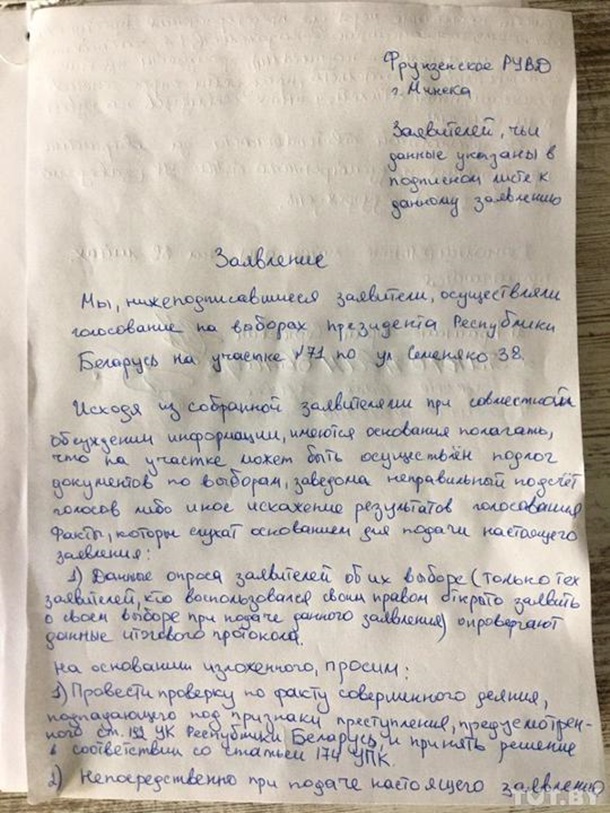 Фрунзенское РУВД
г. Минска
Заявителей, чьи
данные указаны в
подписном листе к
данному заявлению
Заявление
Мы, нижеподписавшиеся заявители, осуществляли
голосование на выборах президента Республики
Беларусь на участке №71 по ул Семеняко 38.
Исходя из собранной заявителями при совместном
обсуждении информации, имеются основания полагать,
что на участке может быть осуществлён подлог
документов по выборам, заведомо неправильный подсчёт
голосов либо иное искажение результатов голосования
Факты, которые служат основанием для подачи настоящего
заявления:
1) Данные опроса заявителей об их выборе (только тех
заявителей, кто воспользовался своим правом открыто заявить
о своем выборе при подаче данного заявления) опровергают
данные итогового протокола.
На основании изложенного, просим:
1) Провести проверку по факту совершенного деяния,
подпадающего под признаки преступления, предусмотрен-
ного ст. 192 УК Республики Беларусь, и принять решение
в соответствии со статьей 174 УПК.
2) Непосредственно при подаче настоящего заявления
TUT.BY